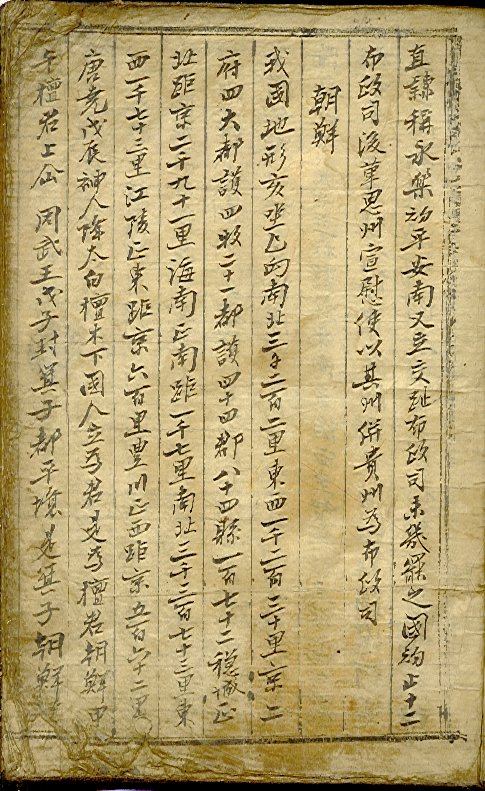 直隸稱永樂初平安南又立交趾布政司未幾罷之國初止十二
布政司後革思州宣慰使以其州併貴州為布政司
朝鮮
我國地形亥坐巳向南北三千二百二里東西一千二百三十里京二
府四大都護四牧二十一都護四十四郡八十四縣一百七十二穩城正
北距京二千九十一里海南正南距一千七里南北三千二百七十三里東
西一千七十三里江陵正東距京六百里豊川正西距京五百六十二里
唐堯戊辰神人降太白檀木下國人立為君是為檀君朝鮮甲
午檀君上仙 周武王戊子封箕子都平壤是箕子朝鮮